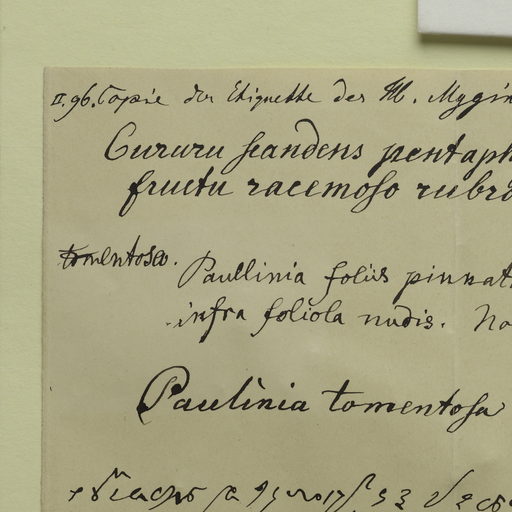 II.96. Copie der Etiquette des M. Mygin
Cururu scandens pentaph
fructu racemoso rubro
tomentosa.
Paullinia foliis pinnat
infra foliola nudis. No
Paulinia tomentosa